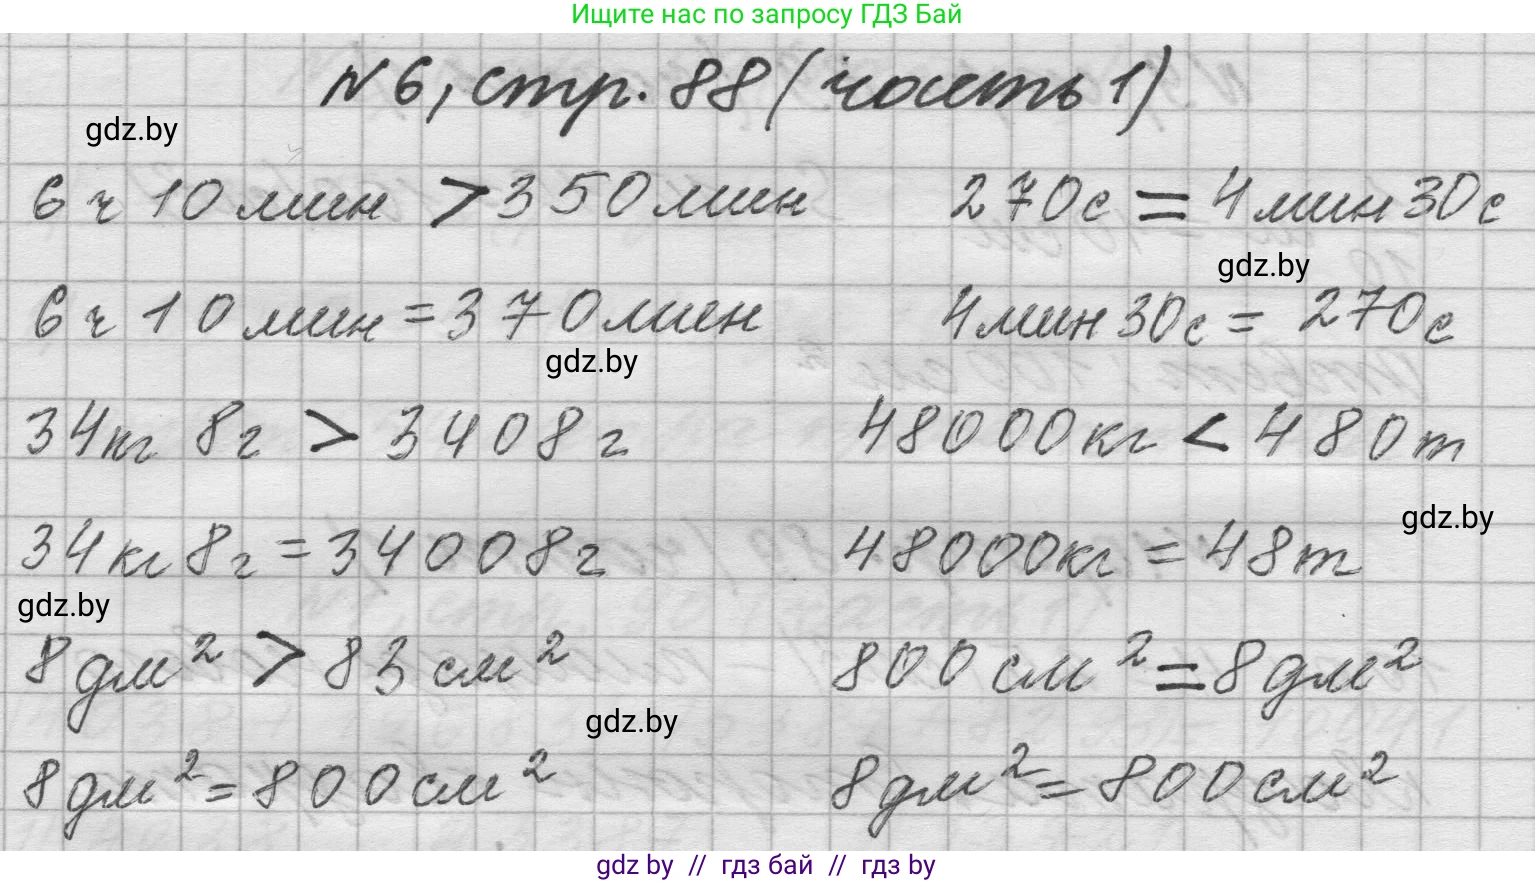 Ищите нас по запросу ГДЗ Бай
№6, стр. 88 (часть 1)
gdz.by
6 ч 10 мин > 350 мин 270 с = 4 мин 30 с
gdz.by
6 ч 10 мин = 370 мин 4 мин 30 с = 270 с
gdz.by
34 кг 8 г > 3408 г 48000 кг < 480 т
gdz.by
34 кг 8 г = 34008 г 48000 кг = 48 т
gdz.by
8 дм² > 83 см² 800 см² = 8 дм²
gdz.by
8 дм² = 800 см² 8 дм² = 800 см²
gdz by // гдз бай // гдз by